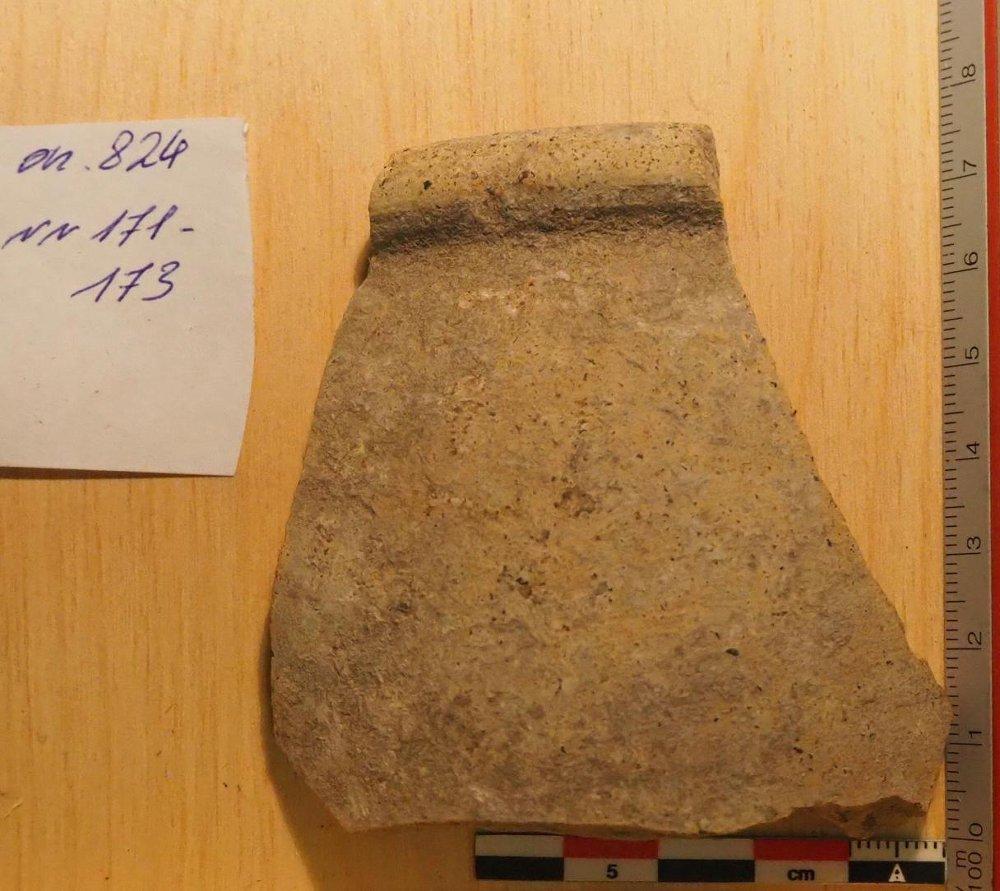 an. 824
nn 171-
173
8
7
6
5
4
3
2
1
0
m
100
5
cm